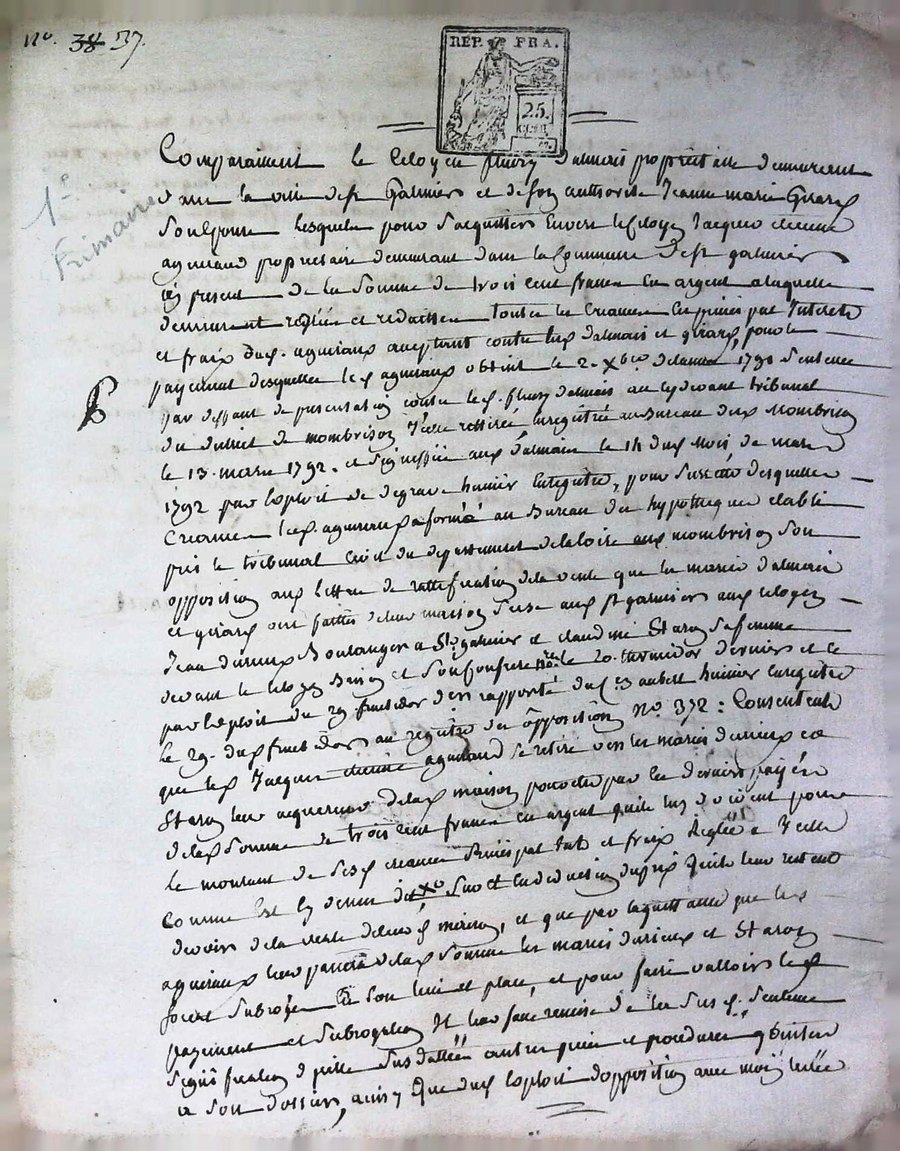 No. 38 37.
REP. FRA.
25.
CENT.
1e
Frimaire
Comparaissent le Citoyen fleury dalmais propriétaire demeurant
dans la ville de st Galmier et de son authorité Jeanne marie Girard
son Epouse lesquels pour s'acquitter Envers le Citoyen Jacques
agniraud propriétaire demeurant dans la Commune de st galmier
cy present de la Somme de trois cent francs en argent a laquelle
demeurent reglées et reduittes toutes les Créances en principal Interets
et frais dud. agniraud acceptant contre lesd dalmais et girard, pour le
payement desquelles led agniraud obtint le 2. Xbre 1791 Sentence
par deffaut de presentation contre led. fleury dalmais au cydevant tribunal
du district de montbrison Icelle rettirée Enregistrée au Bureau dud Montbrison
le 13. mars 1792. et signiffiée aud dalmais le 14 dud Mois de mars
1792 par Exploit de degrave huissier Enregistré, pour sureté desquelles
Creances led. agniraud a formé au Bureau des hypotheques etabli
près le tribunal Civil du departement de la loire aud montbrison Son
opposition aux lettres de rattification de la vente que les mariés dalmais
et girard ont faittes de leur maison Sise aud st galmier aux Citoyens
Jean durieux Boulanger a St. galmier et claudine Staron sa femme
devant le Citoyen et Son Confrere nres le 20. thermidor dernier et ce
par Exploit du 29 fructidor dernier rapporté dud huissier Enregistré
le 29. dud fructidor au registre des oppositions No. 372: Consentent
que led Jacques agniraud se retire vers les mariés durieux et
Staron leurs acquereurs de lad maison pour etre par les derniers payé
de lad Somme de trois cent francs en argent quils luy doivent pour
le montant de sesd creances principal Ints et frais Reglée a Icelle
Comme Est cy dessus dit Sur et en deduction du prix qu'ils leur restent
devoir de la vente de lad maison, et que par lacquittance que led
agniraud leur passera de lad Somme les mariés durieux et Staron
soient Subrogés en son lieu et place, et pour faire valloir led
payement et subrogation Il leur fera remise de la susd. Sentence
signiffication d'icelle Sus dattées autres pièces et procedures
a son dossier, ainsy que dud Exploit d'opposition avec